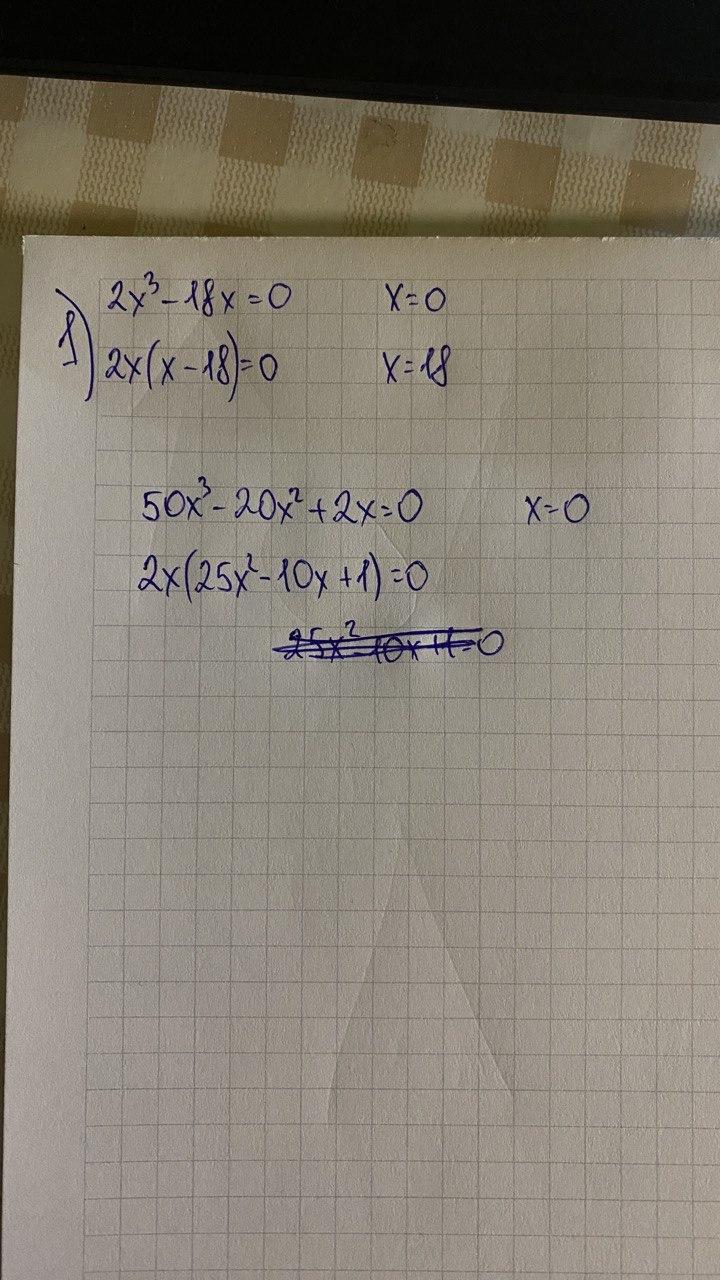 1) 2x³-18x=0 x=0
2x(x-18)=0 x=18
50x³-20x²+2x=0 x=0
2x(25x²-10x+1)=0
25x²-10x+1=0